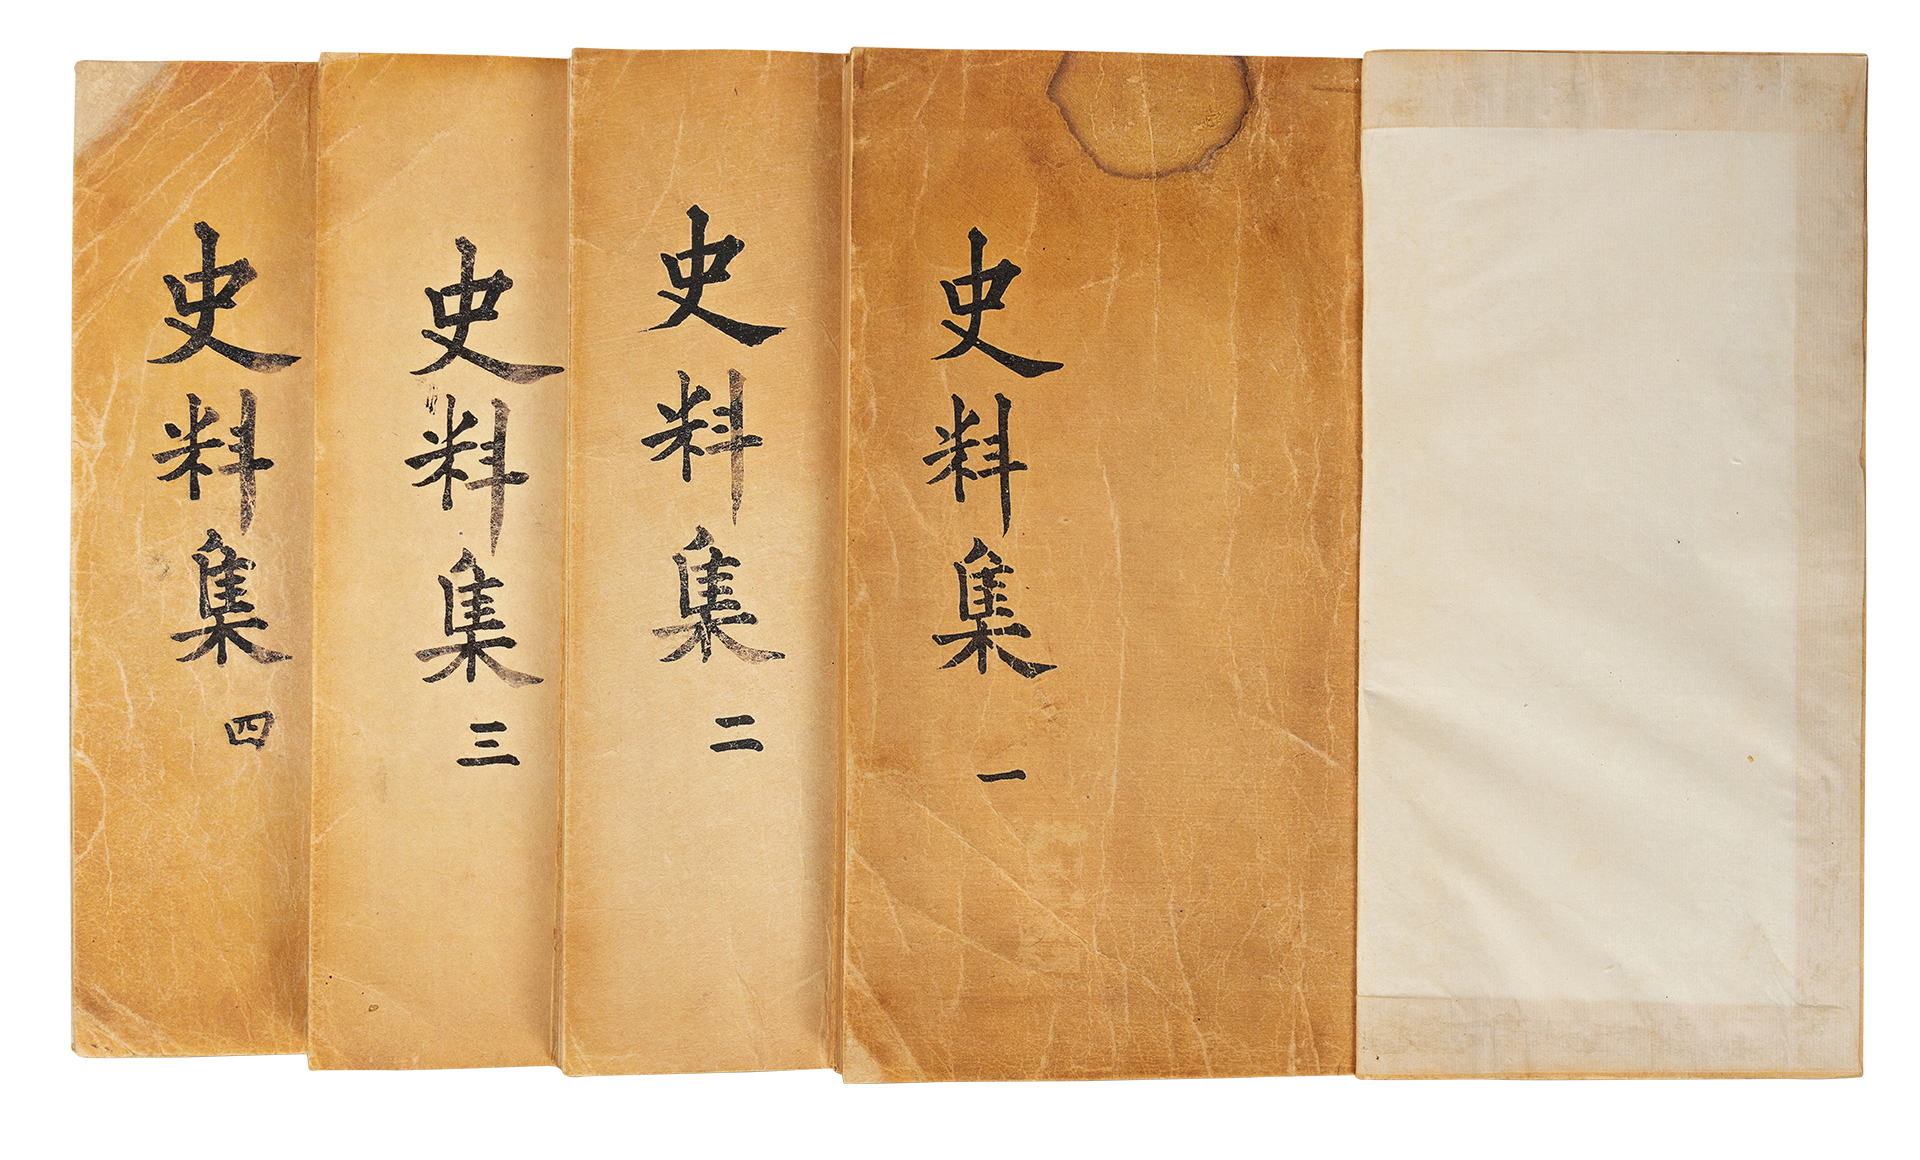 史料集 一
史料集 二
史料集 三
史料集 四